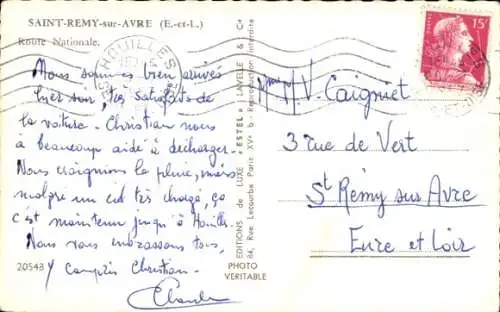 SAINT-REMY-sur-AVRE (E.-et-L.)
Route Nationale.
Nous sommes bien arrivés
hier soir, très satisfaits de
la voiture. Christian nous
a beaucoup aidé à décharger.
Nous craignions la pluie, mais
malgré un ciel très chargé, ça
s'est maintenu jusqu'à Houilles.
Nous vous embrassons tous,
y compris Christian.
20548
PHOTO
VERITABLE
EDITIONS de LUXE "ESTEL" LAVELLE & Cie
84, Rue Lecourbe Paris XVe Reproduction interdite
HOUILLES
15F
V. Caigniet
3 rue de Vert
St Rémy sur Avre
Eure et Loir